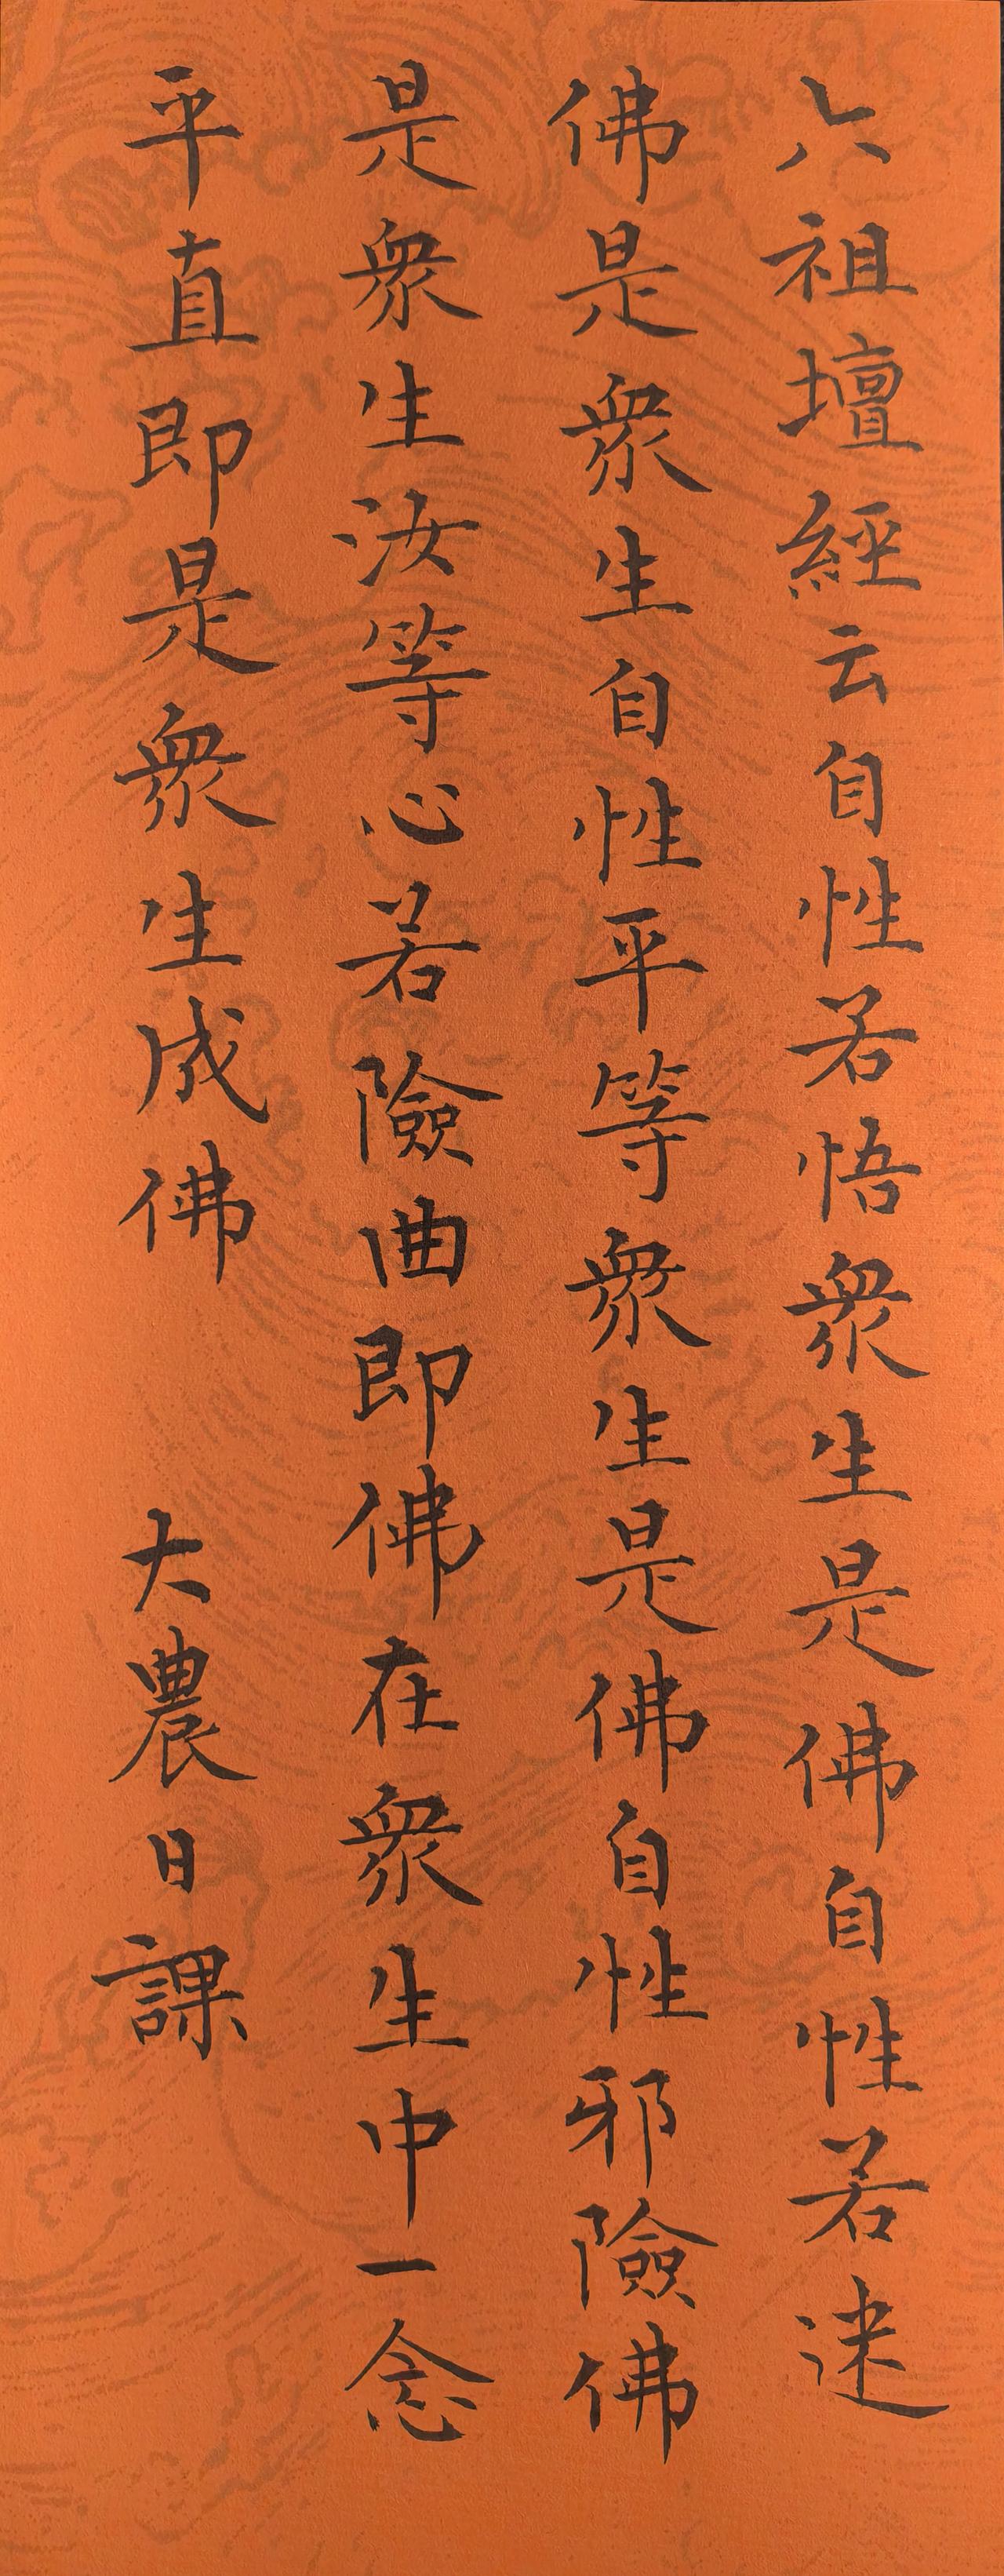 六祖壇經云自性若悟衆生是佛自性若迷
佛是衆生自性平等衆生是佛自性邪險佛
是衆生汝等心若險曲即佛在衆生中一念
平直即是衆生成佛 大農日課